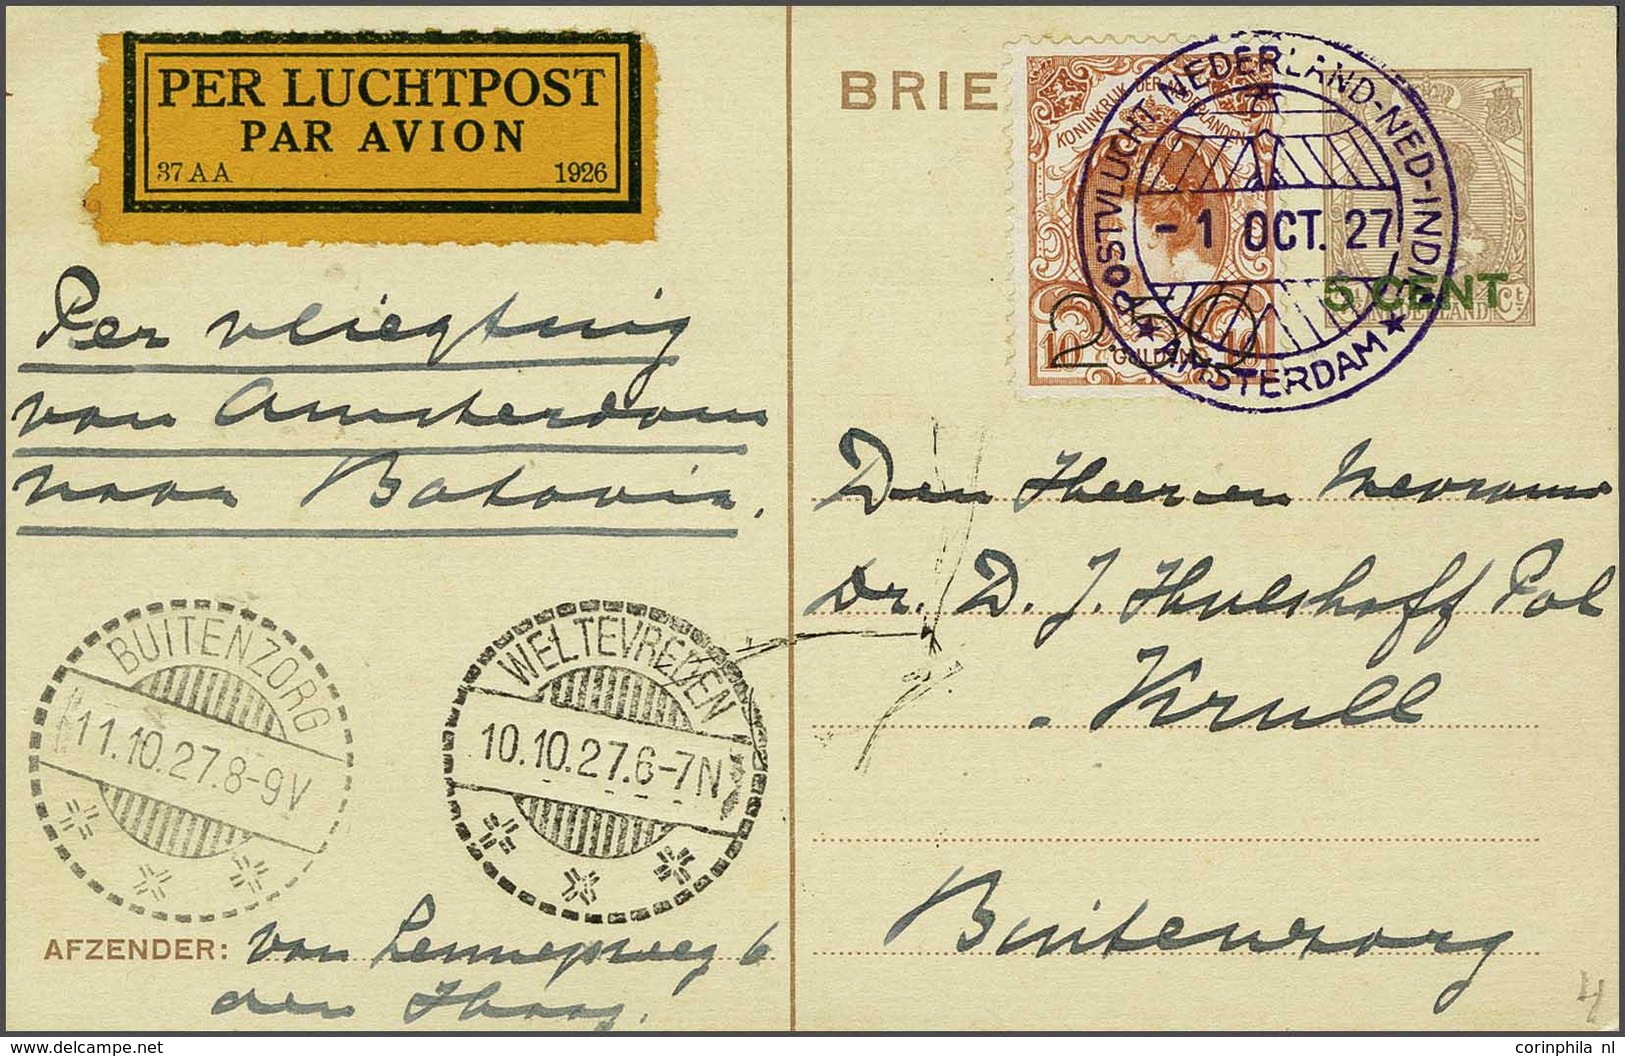 PER LUCHTPOST
PAR AVION
37 A A 1926
BRIE
KONINKRIJK DER
LANDEN
10 GULDEN 10
2.50
POSTVLUCHT NEDERLAND-NED-INDIË
- 1 OCT. 27
★ AMSTERDAM ★
5 CENT
NEDERLAND Ct
Per vliegtuig
van Amsterdam
naar Batavia.
Den Heer en Mevrouw
Dr. D. J. Hulshoff Pol
- Krull
Buitenzorg
BUITENZORG
11.10.27.8-9V
WELTEVREDEN
10.10.27.6-7N
AFZENDER: van Lennepweg 6
den Haag.
4
www.delcampe.net
corinphila nl